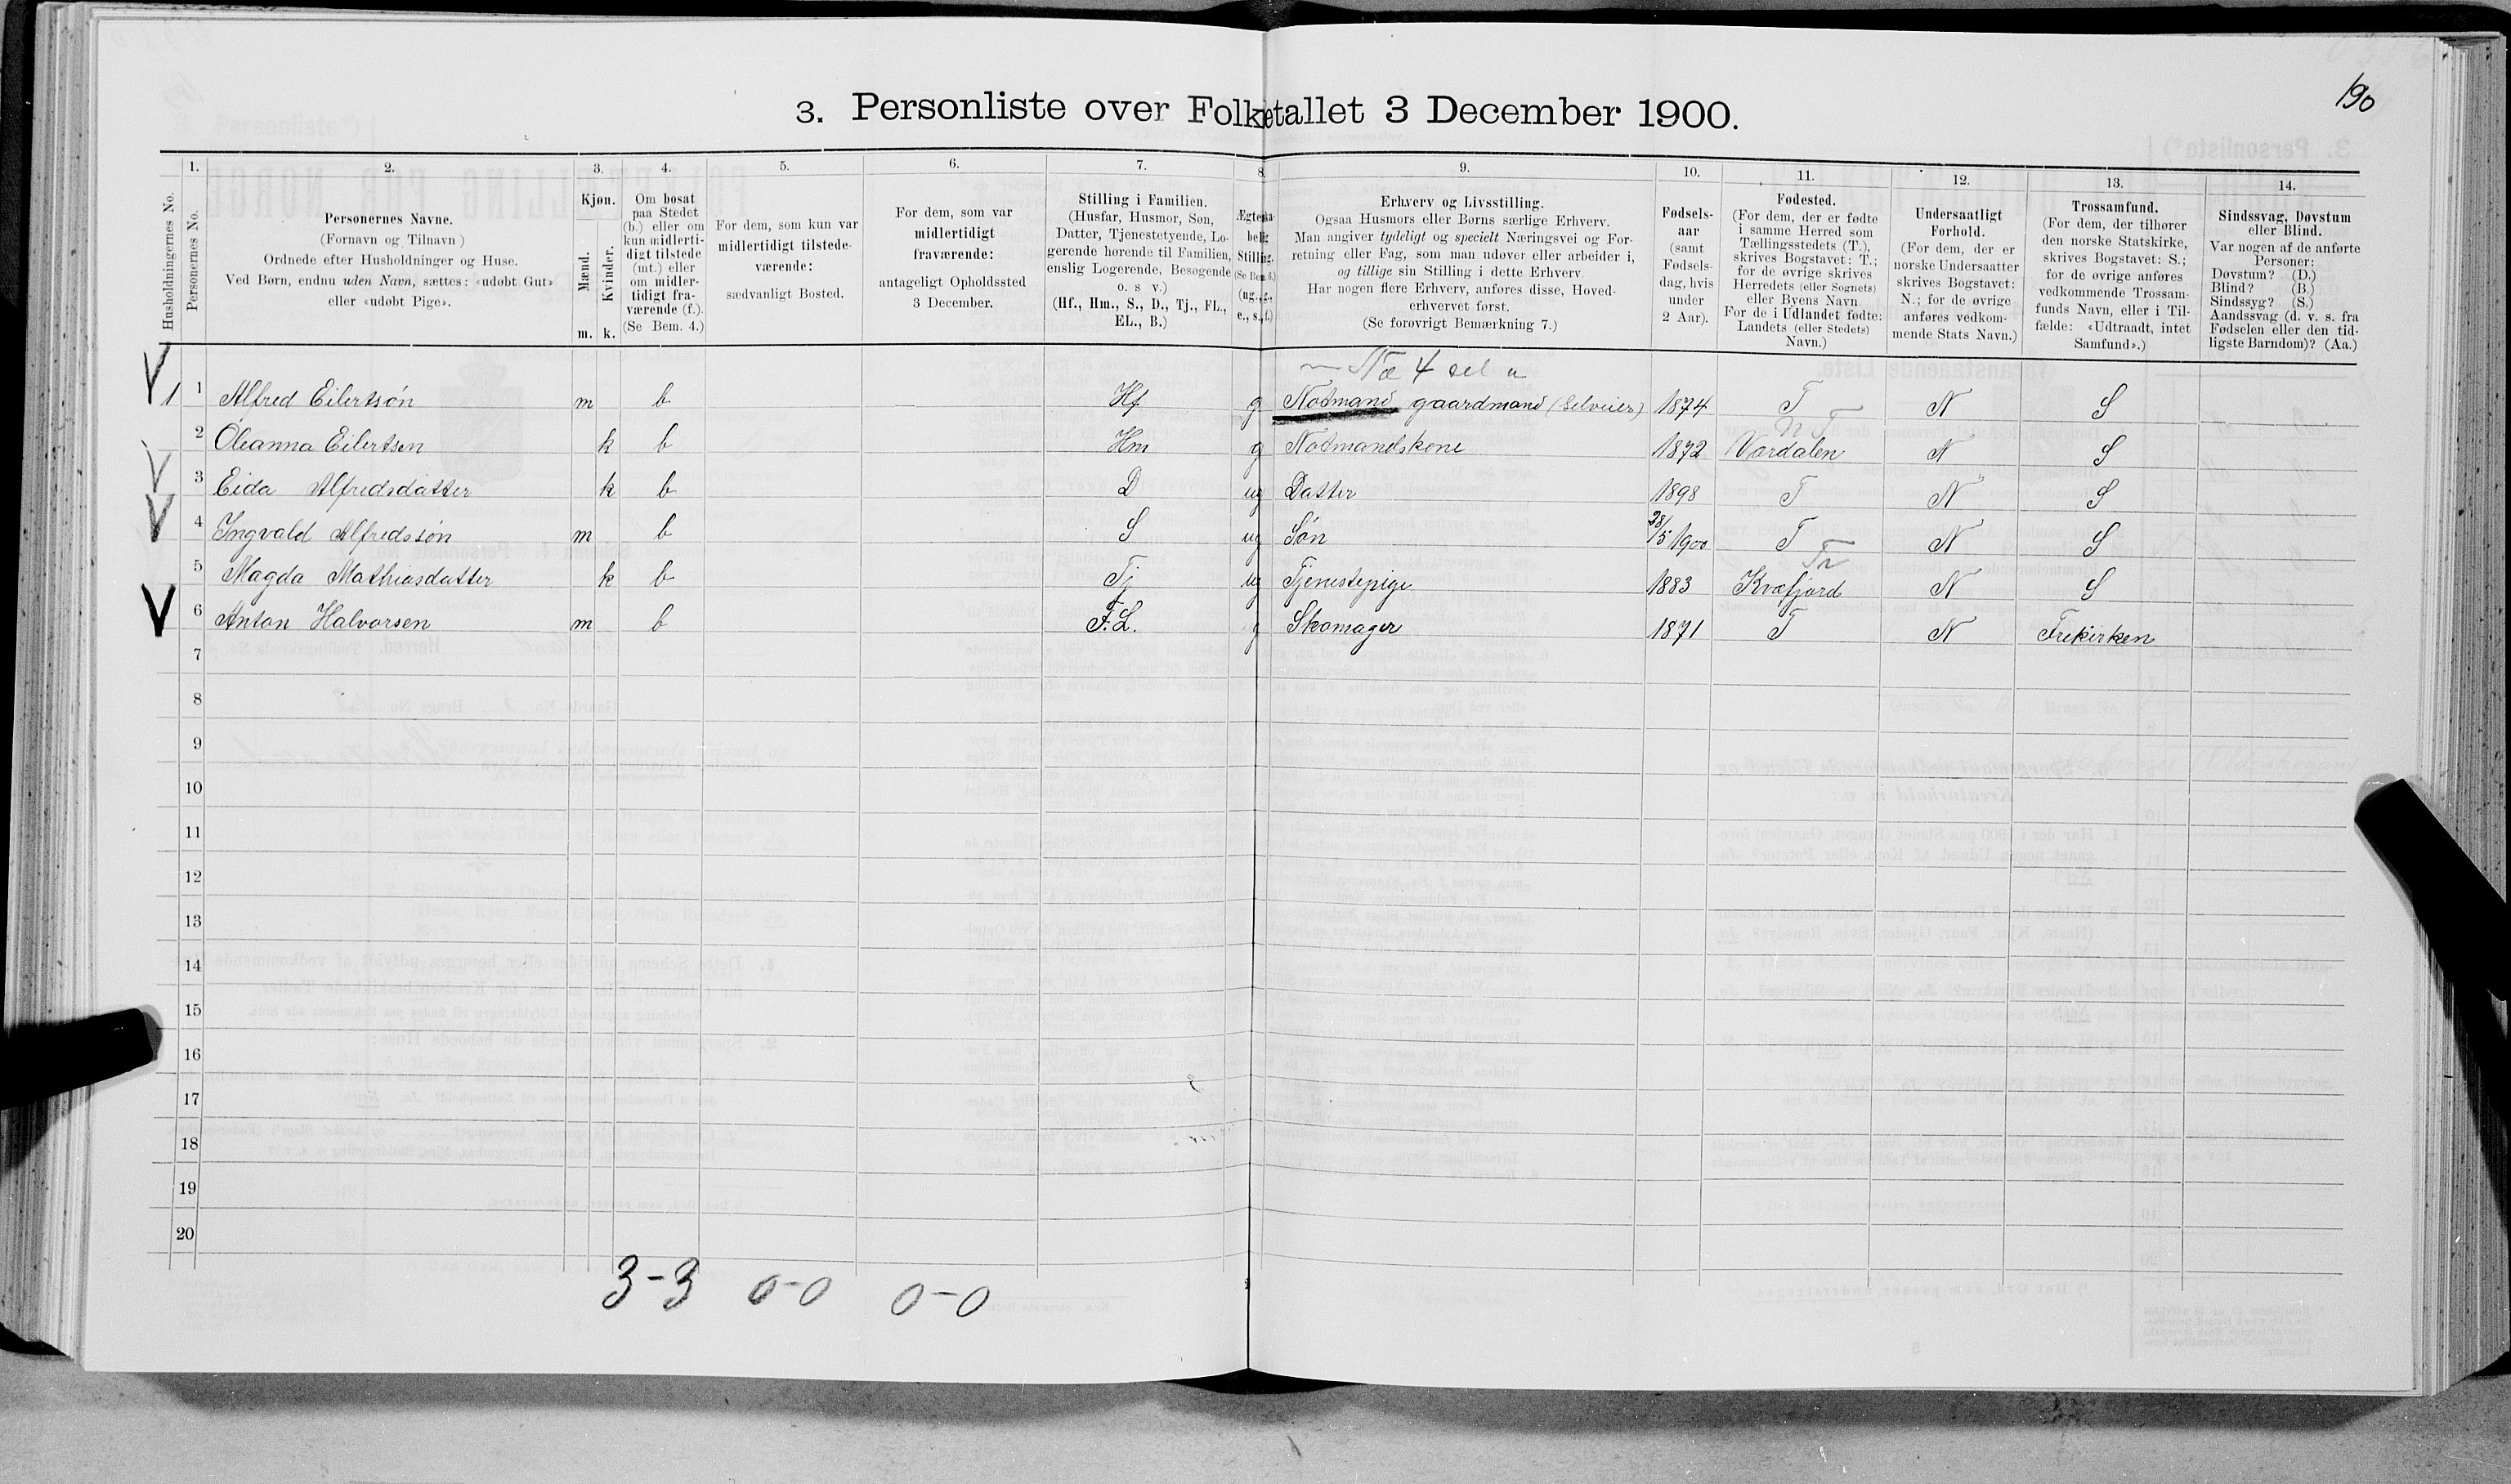 190
3. Personliste over Folketallet 3 December 1900.
1. 2. 3. 4. 5. 6. 7. 8. 9. 10. 11. 12. 13. 14.
Husholdningernes No.
Personernes No.
Personernes Navne.
(Fornavn og Tilnavn )
Ordnede efter Husholdninger og Huse.
Ved Børn, endnu uden Navn, sættes: «udøbt Gut»
eller «udøbt Pige».
Kjøn.
Mænd.
Kvinder.
m. k.
Om bosat
paa Stedet
(b.) eller om
kun midlerti-
digt tilstede
(mt.) eller
om midler-
tidigt fra-
værende (f.).
(Se Bem. 4.)
For dem, som kun var
midlertidigt tilstede-
værende:
sædvanligt Bosted.
For dem, som var
midlertidigt
fraværende:
antageligt Opholdssted
3 December.
Stilling i Familien.
(Husfar, Husmor, Søn,
Datter, Tjenestetyende, Lo-
gerende hørende til Familien,
enslig Logerende, Besøgende
o. s v.)
(Hf., Hm., S., D., Tj., FL.,
EL., B.)
Ægteska-
belig
Stilling.
(Se Bem 6.)
(ug., g.,
e., s., f.)
Erhverv og Livsstilling.
Ogsaa Husmors eller Børns særlige Erhverv.
Man angiver tydeligt og specielt Næringsvei og For-
retning eller Fag, som man udøver eller arbeider i,
og tillige sin Stilling i dette Erhverv.
Har nogen flere Erhverv, anføres disse, Hoved-
erhvervet først.
(Se forøvrigt Bemærkning 7.)
Fødsels-
aar
(samt
Fødsels-
dag, hvis
under
2 Aar).
Fødested.
(For dem, der er fødte
i samme Herred som
Tællingsstedets (T.),
skrives Bogstavet: T.;
for de øvrige skrives
Herredets (eller Sognets)
eller Byens Navn
For de i Udlandet fødte:
Landets (eller Stedets)
Navn.)
Undersaatligt
Forhold.
(For dem, der er
norske Undersaatter
skrives Bogstavet:
N.; for de øvrige
anføres vedkom-
mende Stats Navn.)
Trossamfund.
(For dem, der tilhører
den norske Statskirke,
skrives Bogstavet: S.;
for de øvrige anføres
vedkommende Trossam-
funds Navn, eller i Til-
fælde: «Udtraadt, intet
Samfund».)
Sindssvag, Døvstum
eller Blind.
Var nogen af de anførte
Personer:
Døvstum? (D.)
Blind? (B.)
Sindssyg? (S.)
Aandssvag (d. v. s. fra
Fødselen eller den tid-
ligste Barndom)? (Aa.)
1 1 Alfred Eilertsøn m b Hf g Nodmand gaardmand (Selveier) 1874 T N S
n T
2 Oleanna Eilertsen k b Hm g Nodmandskone 1872 Værdalen N S
3 Eida Alfredsdatter k b D ug Datter 1898 T N S
4 Ingvald Alfredssøn m b S ug Søn 28/5 1900 T N S
Tr
5 Magda Mathiasdatter k b Tj ug Tjenestepige 1883 Kvæfjord N S
6 Anton Halvorsen m b F.L. g Skomager 1871 T N Frikirken
7
8
9
10
11
12
13
14
15
16
17
18
19
20
3-3 0-0 0-0